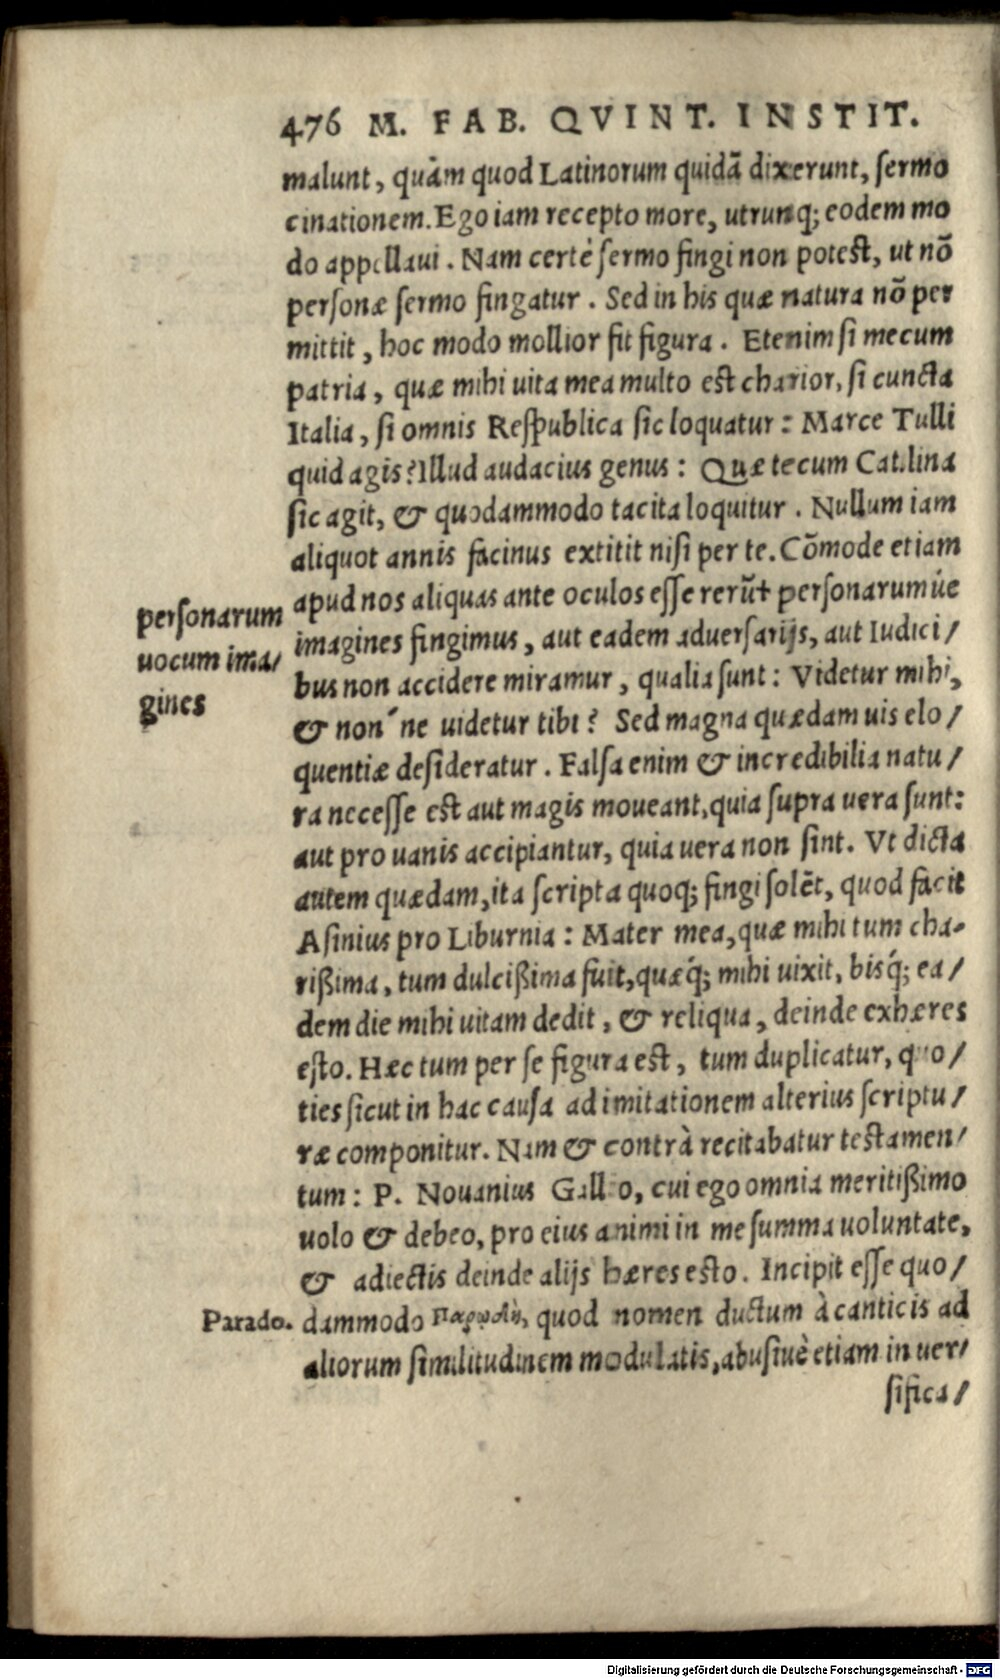 476 M. FAB. QVINT. INSTIT.
malunt, quàm quod Latinorum quidā dixerunt, sermo
cinationem. Ego iam recepto more, utrunq; eodem mo
do appellaui. Nam certè sermo fingi non potest, ut nō
personæ sermo fingatur. Sed in his quæ natura nō per
mittit, hoc modo mollior fit figura. Etenim si mecum
patria, quæ mihi uita mea multo est charior, si cuncta
Italia, si omnis Respublica sic loquatur: Marce Tulli
quid agis? Illud audacius genus: Quæ tecum Catilina
sic agit, & quodammodo tacita loquitur. Nullum iam
aliquot annis facinus extitit nisi per te. Cōmode etiam
apud nos aliquas ante oculos esse rerū+ personarum úe
personarum
uocum ima/
gines
imagines fingimus, aut eadem aduersarijs, aut Iudici/
bus non accidere miramur, qualia sunt: Videtur mihi,
& non´ne uidetur tibi? Sed magna quædam uis elo/
quentiæ desideratur. Falsa enim & incredibilia natu/
ra necesse est aut magis moueant, quia supra uera sunt:
aut pro uanis accipiantur, quia uera non sint. Vt dicta
autem quædam, ita scripta quoq; fingi solēt, quod facit
Asinius pro Liburnia: Mater mea, quæ mihi tum cha-
rißima, tum dulcißima fuit, quæq́; mihi uixit, bisq́; ea/
dem die mihi uitam dedit, & reliqua, deinde exhæres
esto. Hæc tum per se figura est, tum duplicatur, quo/
ties sicut in hac causa ad imitationem alterius scriptu/
ræ componitur. Nam & contrà recitabatur testamen/
tum: P. Nouanius Gallio, cui ego omnia meritißimo
uolo & debeo, pro eius animi in me summa uoluntate,
& adiectis deinde alijs hæres esto. Incipit esse quo/
Parado. dammodo Παρωδὴ, quod nomen ductum à canticis ad
aliorum similitudinem modulatis, abusiuè etiam in uer/
sifica/
Digitalisierung gefördert durch die Deutsche Forschungsgemeinschaft - DFG